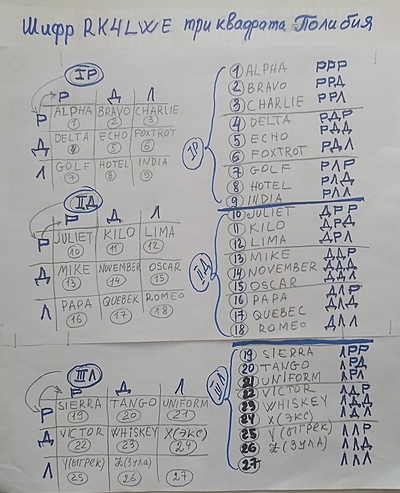 Шифр RK4LWE три квадрата Полибия
I Р
Р Д Л
Р ALPHA BRAVO CHARLIE
1 2 3
Д DELTA ECHO FOXTROT
4 5 6
Л GOLF HOTEL INDIA
7 8 9
II Д
Р Д Л
Р JULIET KILO LIMA
10 11 12
Д MIKE NOVEMBER OSCAR
13 14 15
Л PAPA QUEBEK ROMEO
16 17 18
III Л
Р Д Л
Р SIERRA TANGO UNIFORM
19 20 21
Д VICTOR WHISKEY X(ЭКС)
22 23 24
Л Y(ЫГРЕК) Z(ЗУЛА)
25 26 27
I Р
1 ALPHA РРР
2 BRAVO РРД
3 CHARLIE РРЛ
4 DELTA РДР
5 ECHO РДД
6 FOXTROT РДЛ
7 GOLF РЛР
8 HOTEL РЛД
9 INDIA РЛЛ
II Д
10 JULIET ДРР
11 KILO ДРД
12 LIMA ДРЛ
13 MIKE ДДР
14 NOVEMBER ДДД
15 OSCAR ДДЛ
16 PAPA ДЛР
17 QUEBEC ДЛД
18 ROMEO ДЛЛ
III Л
19 SIERRA ЛРР
20 TANGO ЛРД
21 UNIFORM ЛРЛ
22 VICTOR ЛДР
23 WHISKEY ЛДД
24 X(ЭКС) ЛДЛ
25 Y(ЫГРЕК) ЛЛР
26 Z(ЗУЛА) ЛЛД
27 ЛЛЛ